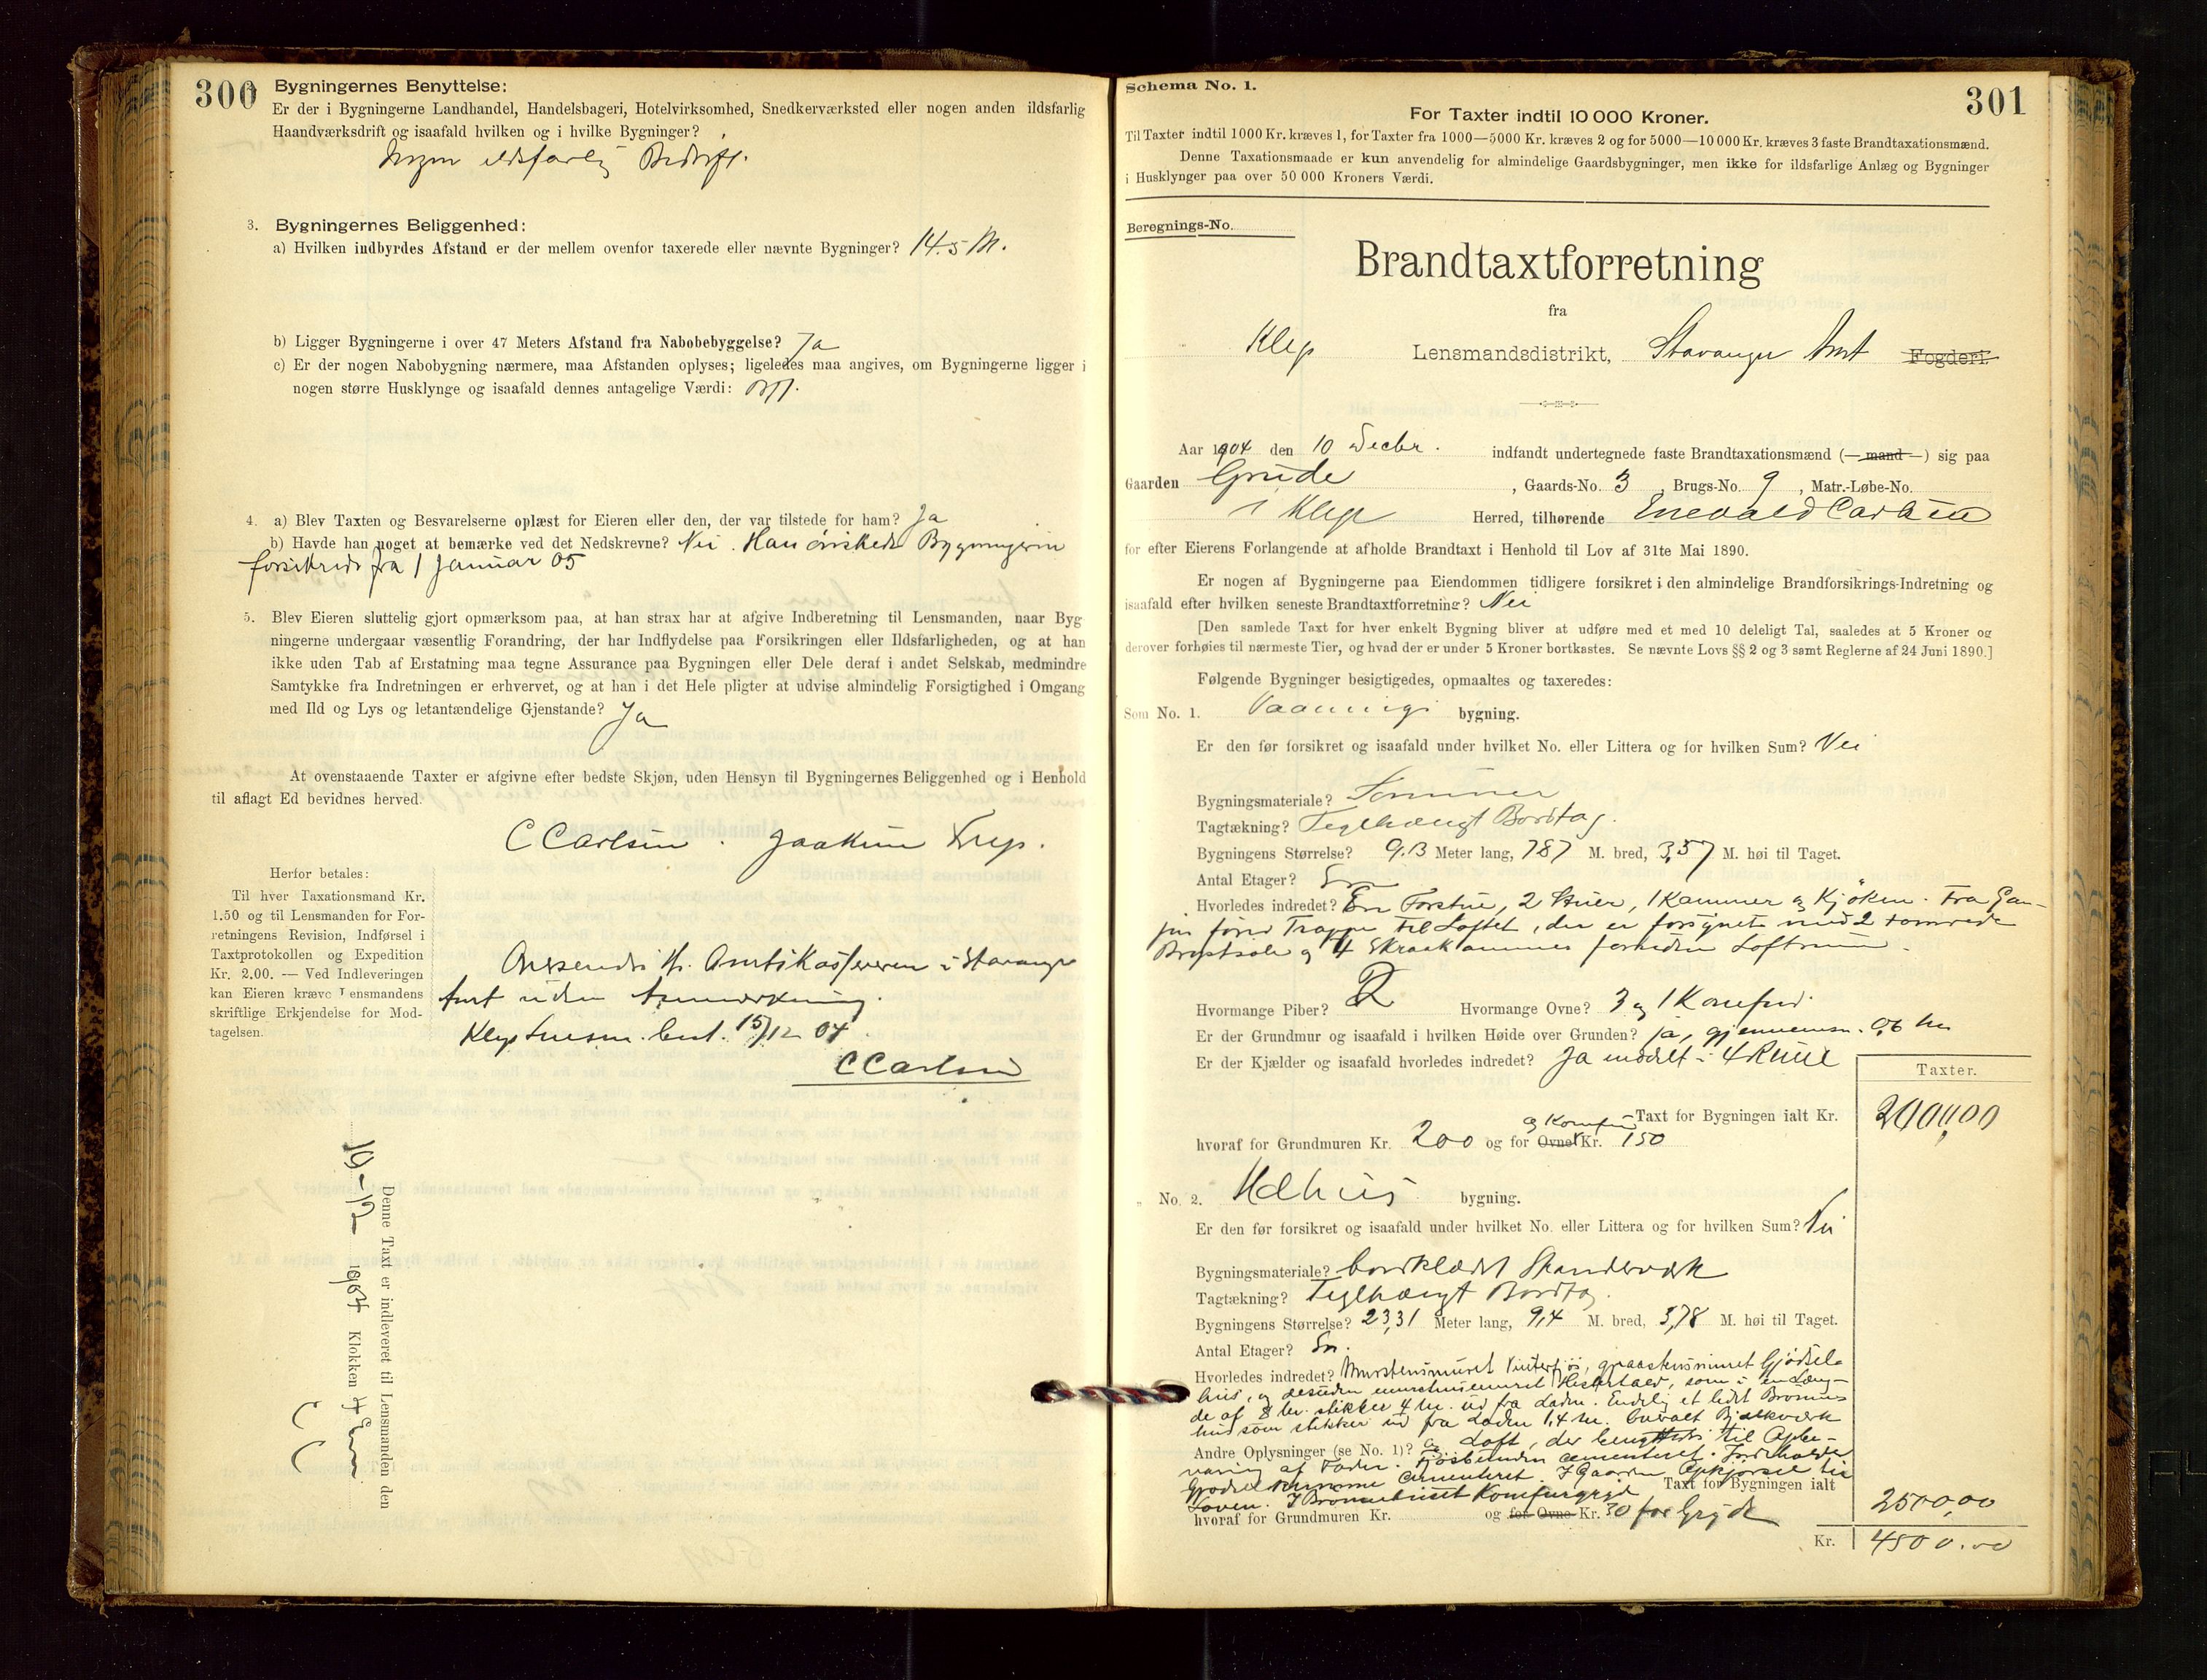 300
Bygningernes Benyttelse:
Er der i Bygningerne Landhandel, Handelsbageri, Hotelvirksomhed, Snedkerværksted eller nogen anden ildsfarlig
Haandværksdrift og isaafald hvilken og i hvilke Bygninger?
Ingen ildsfarlig Bedrift.
3. Bygningernes Beliggenhed:
a) Hvilken indbyrdes Afstand er der mellem ovenfor taxerede eller nævnte Bygninger? 14.5 M.
b) Ligger Bygningerne i over 47 Meters Afstand fra Nabobebyggelse? Ja
c) Er der nogen Nabobygning nærmere, maa Afstanden oplyses; ligeledes maa angives, om Bygningerne ligger i
nogen større Husklynge og isaafald dennes antagelige Værdi:
4. a) Blev Taxten og Besvarelserne oplæst for Eieren eller den, der var tilstede for ham? Ja
b) Havde han noget at bemærke ved det Nedskrevne? Nei. Han ønskede Bygningerne
forsikrede fra 1 Januar 05
5. Blev Eieren sluttelig gjort opmærksom paa, at han strax har at afgive Indberetning til Lensmanden, naar Byg
ningerne undergaar væsentlig Forandring, der har Indflydelse paa Forsikringen eller Ildsfarligheden, og at han
ikke uden Tab af Erstatning maa tegne Assurance paa Bygningen eller Dele deraf i andet Selskab, medmindre
Samtykke fra Indretningen er erhvervet, og at han i det Hele pligter at udvise almindelig Forsigtighed i Omgang
med Ild og Lys og letantændelige Gjenstande? Ja
At ovenstaaende Taxter er afgivne efter bedste Skjøn, uden Hensyn til Bygningernes Beliggenhed og i Henhold
til aflagt Ed bevidnes herved.
C Carlsen. Joakim
Herfor betales:
Til hver Taxationsmand Kr.
1.50 og til Lensmanden for For-
retningens Revision, Indførsel i
Taxtprotokollen og Expedition
Kr. 2.00. — Ved Indleveringen
kan Eieren kræve Lensmandens
skriftlige Erkjendelse for Mod-
tagelsen.
Oversendes Hr. Amtskassereren i Stavanger
Amt uden Anmærkning.
Klep 15/12 04.
C Carlsen
Denne Taxt er indleveret til Lensmanden den
10-12 1904 Klokken 4 Em
C C
301
Schema No. 1.
For Taxter indtil 10 000 Kroner.
Til Taxter indtil 1000 Kr. kræves 1, for Taxter fra 1000—5000 Kr. kræves 2 og for 5000—10 000 Kr. kræves 3 faste Brandtaxationsmænd.
Denne Taxationsmaade er kun anvendelig for almindelige Gaardsbygninger, men ikke for ildsfarlige Anlæg og Bygninger
i Husklynger paa over 50 000 Kroners Værdi.
Beregnings-No.
Brandtaxtforretning
fra
Klep Lensmandsdistrikt, Stavanger Amt Fogderi.
Aar 1904 den 10 Decbr. indfandt undertegnede faste Brandtaxationsmænd (—mand—) sig paa
Gaarden Grude, Gaards-No. 3, Brugs-No. 9, Matr.-Løbe-No.
i Klep Herred, tilhørende Enevald Carlsen
for efter Eierens Forlangende at afholde Brandtaxt i Henhold til Lov af 31te Mai 1890.
Er nogen af Bygningerne paa Eiendommen tidligere forsikret i den almindelige Brandforsikrings-Indretning og
isaafald efter hvilken seneste Brandtaxtforretning? Nei
[Den samlede Taxt for hver enkelt Bygning bliver at udføre med et med 10 deleligt Tal, saaledes at 5 Kroner og
derover forhøies til nærmeste Tier, og hvad der er under 5 Kroner bortkastes. Se nævnte Lovs §§ 2 og 3 samt Reglerne af 24 Juni 1890.]
Følgende Bygninger besigtigedes, opmaaltes og taxeredes:
Som No. 1. Vaanings bygning.
Er den før forsikret og isaafald under hvilket No. eller Littera og for hvilken Sum? Nei
Bygningsmateriale? Tømmer
Tagtækning? Teglhængt Bordtag.
Bygningens Størrelse? 9.13 Meter lang, 7.87 M. bred, 3,57 M. høi til Taget.
Antal Etager? En
Hvorledes indredet? En Forstue, 2 Stuer, 1 Kammer og Kjøken. Fra Gan-
gen fører Trappe til Loftet, der er forsynet med 2 tømrede
og 4 Skraakammer foruden Loftsrum.
Hvormange Piber? 2 Hvormange Ovne? 3 og 1 Komfur.
Er der Grundmur og isaafald i hvilken Høide over Grunden? ja, gjennemsn. 0,6 m
Er der Kjælder og isaafald hvorledes indredet? Ja inddelt i 4 Rum
Taxter.
Taxt for Bygningen ialt Kr. 2000,00
hvoraf for Grundmuren Kr. 200 og for Ovne og Komfur Kr. 150
" No. 2. Udhus bygning.
Er den før forsikret og isaafald under hvilket No. eller Littera og for hvilken Sum? Nei
Bygningsmateriale? bordklædt Standerværk
Tagtækning? Teglhængt Bordtag.
Bygningens Størrelse? 23,31 Meter lang, 9,4 M. bred, 3,78 M. høi til Taget.
Antal Etager? En.
Hvorledes indredet? Murstensmuret Vinterfjøs, graastensmuret Gjødsel-
hus, og desuden murstensmuret Hestestald, som i en Læng-
de af 8 m. stikker 4 m. ud fra Laden. Endelig et lidet Brønn-
hus som stikker ud fra Laden 1,4 m. Bjelkeværk
Andre Oplysninger (se No. 1)? og Loft, der benyttes til Opbe-
varing af Foder. Fjøsbunden cementeret.
Gjødselrumme cementeret. I Gaarden Opkjørsel til
Loven. I Brønnhuset Komfurgryde Taxt for Bygningen ialt 2500,00
hvoraf for Grundmuren Kr. og for Ovne Kr. 30 for Gryde
Kr. 4500.00